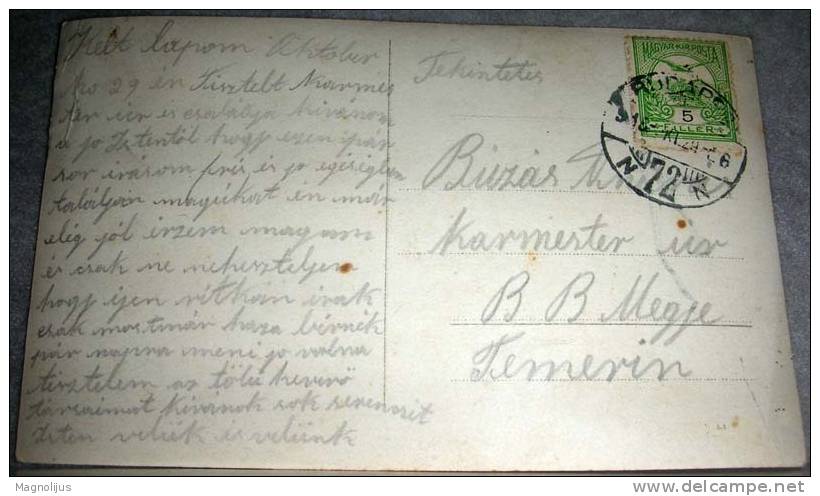 Kelt lapom Oktober
ho 29 én Tisztelt Karmes
ter úr és családja kívánom
a jo Istentöl hogy ezen ipár
sor irásom fris és jo egésségben
találjan magúkat én már
elég jól érzem magam
és csak ne neheszteljen
hogy ijen ritkán irok
csak mostmár haza
pár napra meni jo volna
tisztelem az
társaimat Kivánok sok serencsit
Isten velük és velünk
Tekintetes
Búzás
Karmester ur
B B Megje
Temerin
MAGYAR KIR. POSTA
5
FALLER
BUDAPEST
72
N N
Magnolijus
delcampe.net